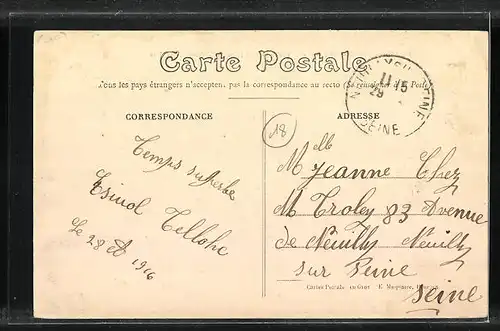 Carte Postale
Tous les pays étrangers n'acceptent pas la correspondance au recto (se renseigner à la Poste)
CORRESPONDANCE
ADRESSE
NEUILLY SUR SEINE
11 15
28
SEINE
18
Temps superbe
Le 28 1916
Mlle Jeanne Chez
M Troley 83 Avenue
de Neuilly Neuilly
sur Seine
Seine
Cartes Postales en Gros